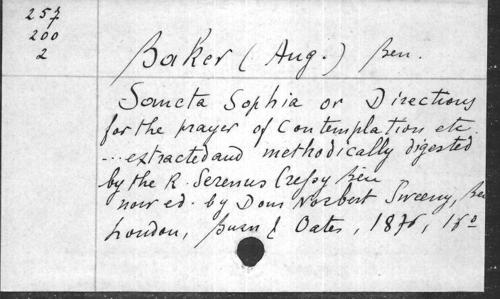 257
200
2
Baker (Aug.) Ben.
Sancta Sophia or Directions
for the prayer of Contemplation etc
... extracted and methodically digested
by the R. Serenus Cressy Ben
now ed. by Dom Norbert Sweeny, Ben
London, Burn & Oates, 1876, 16º